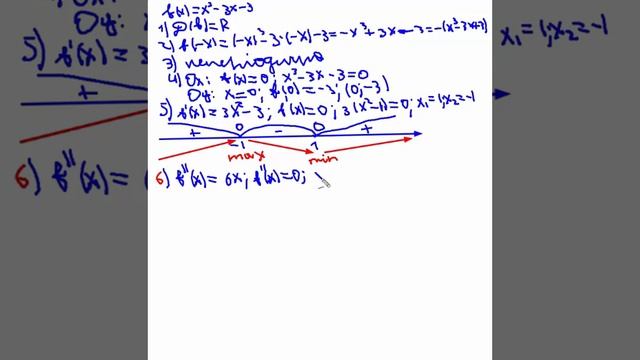 f(x)=x³-3x-3
1) D(f)=R
2) f(-x)=(-x)³-3·(-x)-3=-x³+3x-3=-(x³-3x+3)
3) неперіодична
4) Ox: f(x)=0; x³-3x-3=0
Oy: x=0; f(0)=-3; (0;-3)
5) f'(x)=3x²-3; f'(x)=0; 3(x²-1)=0; x₁=1; x₂=-1
+ 0 - 0 +
-1 1
max min
6) f''(x)=6x; f''(x)=0;